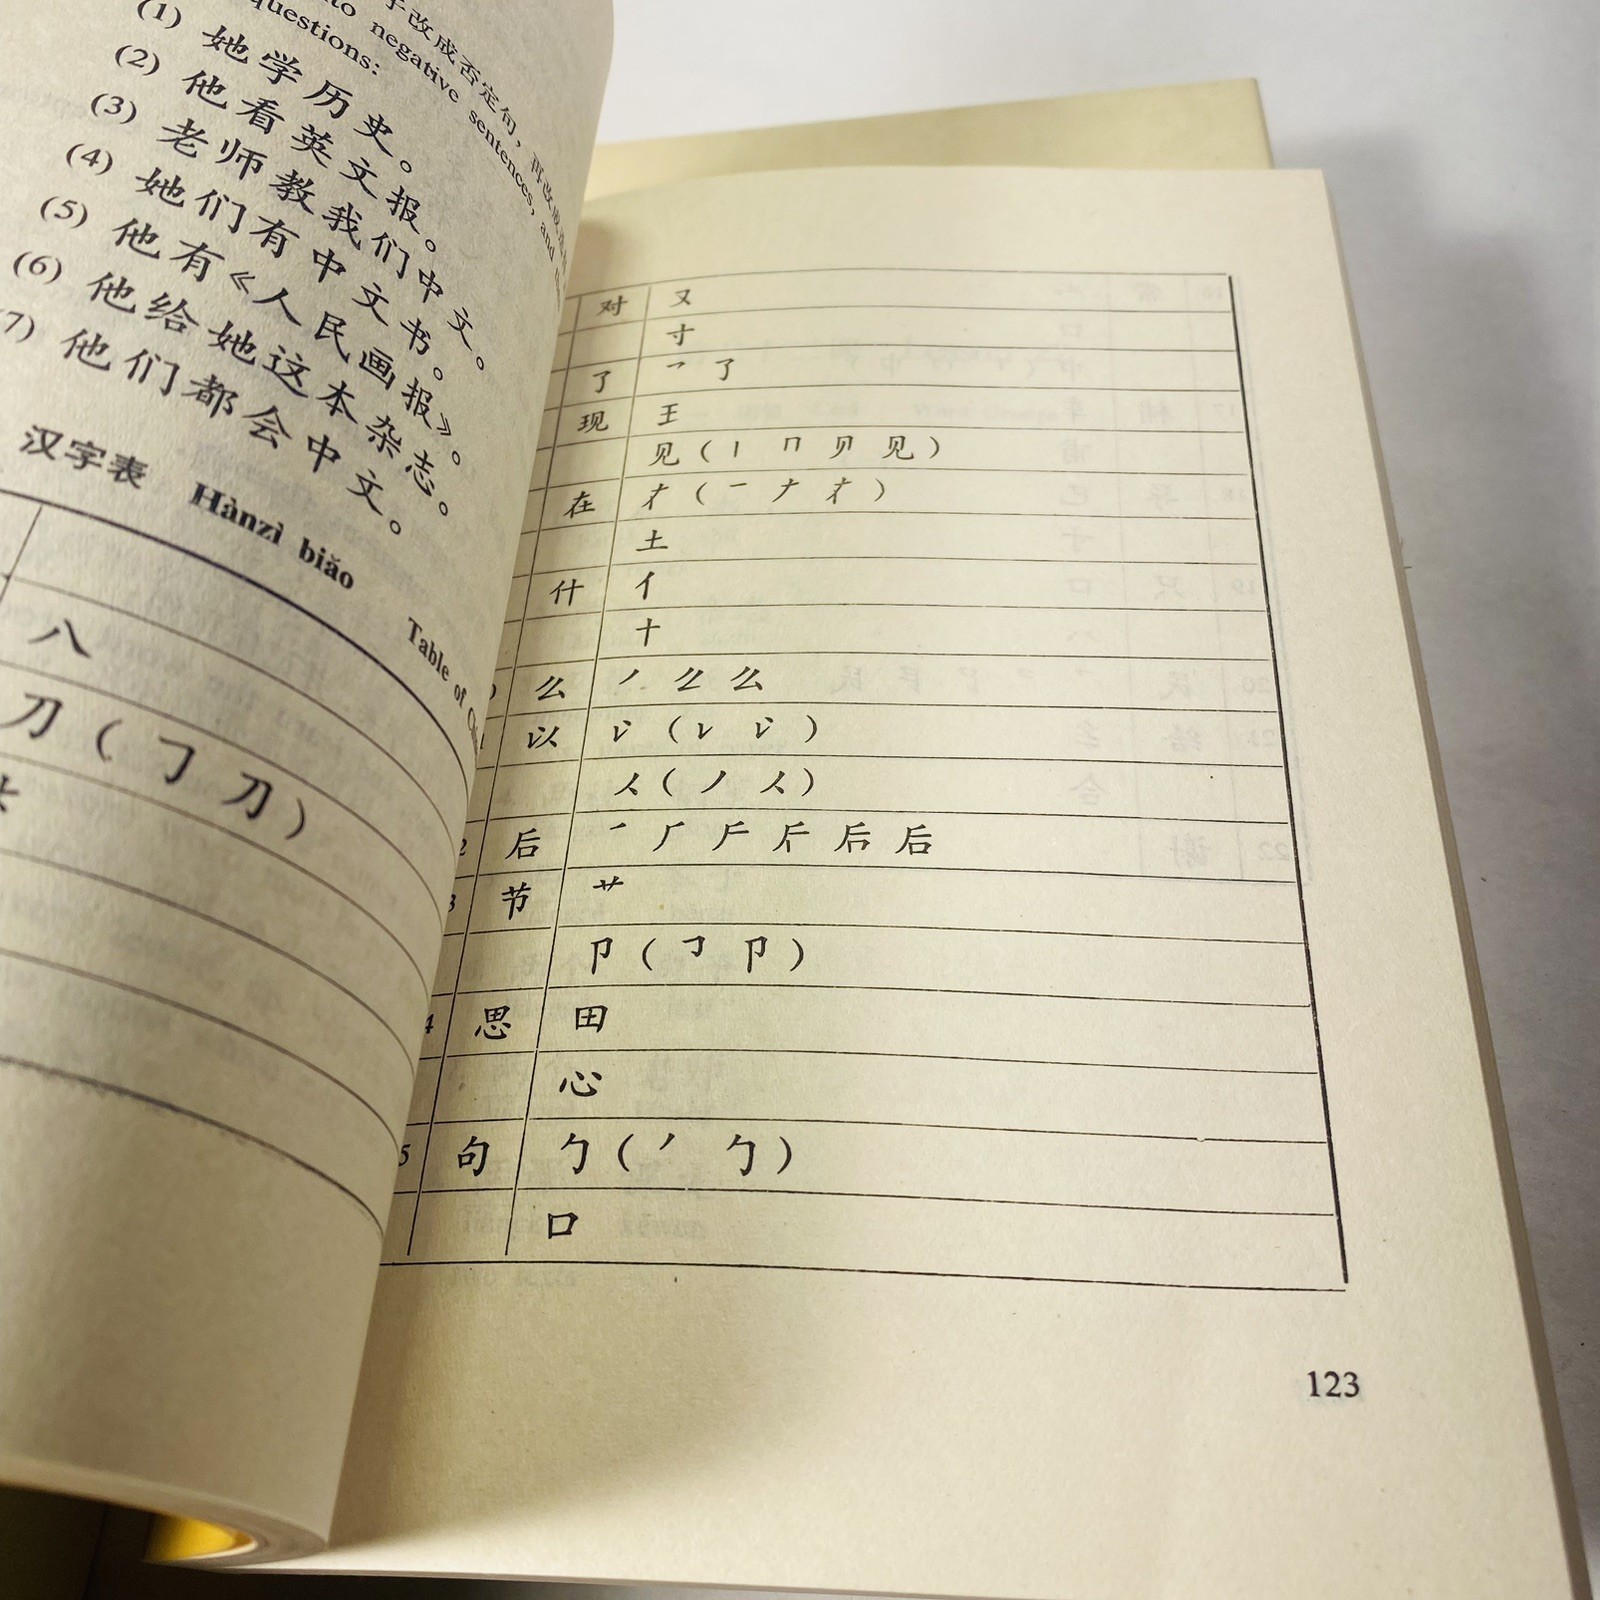 子改成否定句，再改成
into negative sentences, and
questions:
(1) 她学历史。
(2) 他看英文报。
(3) 老师教我们中文。
(4) 她们有中文书。
(5) 他有《人民画报》。
(6) 他给她这本杂志。
7) 他们都会中文。
汉字表 Hànzì biǎo Table of
八
刀 ( ㇆ 刀 )
对 又
寸
了 乛 了
现 王
见 ( 丨 冂 贝 见 )
在 𠂇 ( 一 ナ 𠂇 )
土
什 亻
十
么 丿 幺 么
以
人 ( 丿 人 )
2 后 一 厂 后 后
3 节 艹
卩 ( ㇆ 卩 )
4 思 田
心
5 句 勹 ( 丿 勹 )
口
123